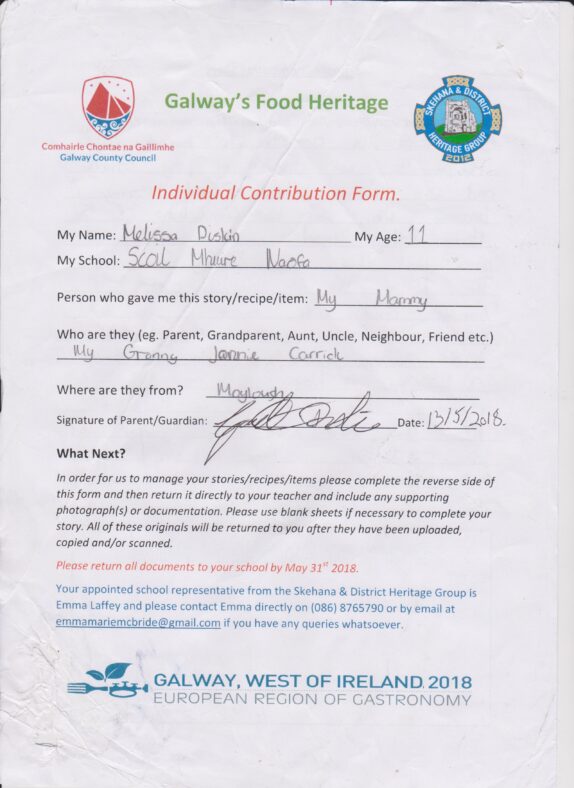 Galway's Food Heritage
SKEHANA & DISTRICT
HERITAGE GROUP
2012
Comhairle Chontae na Gaillimhe
Galway County Council
Individual Contribution Form.
My Name: Melissa Duskin My Age: 11
My School: Scoil Mhuire Naofa
Person who gave me this story/recipe/item: My Mammy
Who are they (eg. Parent, Grandparent, Aunt, Uncle, Neighbour, Friend etc.)
My Granny Jannie Carrick
Where are they from? Moylough
Signature of Parent/Guardian: Date: 13/5/2018.
What Next?
In order for us to manage your stories/recipes/items please complete the reverse side of
this form and then return it directly to your teacher and include any supporting
photograph(s) or documentation. Please use blank sheets if necessary to complete your
story. All of these originals will be returned to you after they have been uploaded,
copied and/or scanned.
Please return all documents to your school by May 31st 2018.
Your appointed school representative from the Skehana & District Heritage Group is
Emma Laffey and please contact Emma directly on (086) 8765790 or by email at
emmamariemcbride@gmail.com if you have any queries whatsoever.
GALWAY, WEST OF IRELAND 2018
EUROPEAN REGION OF GASTRONOMY